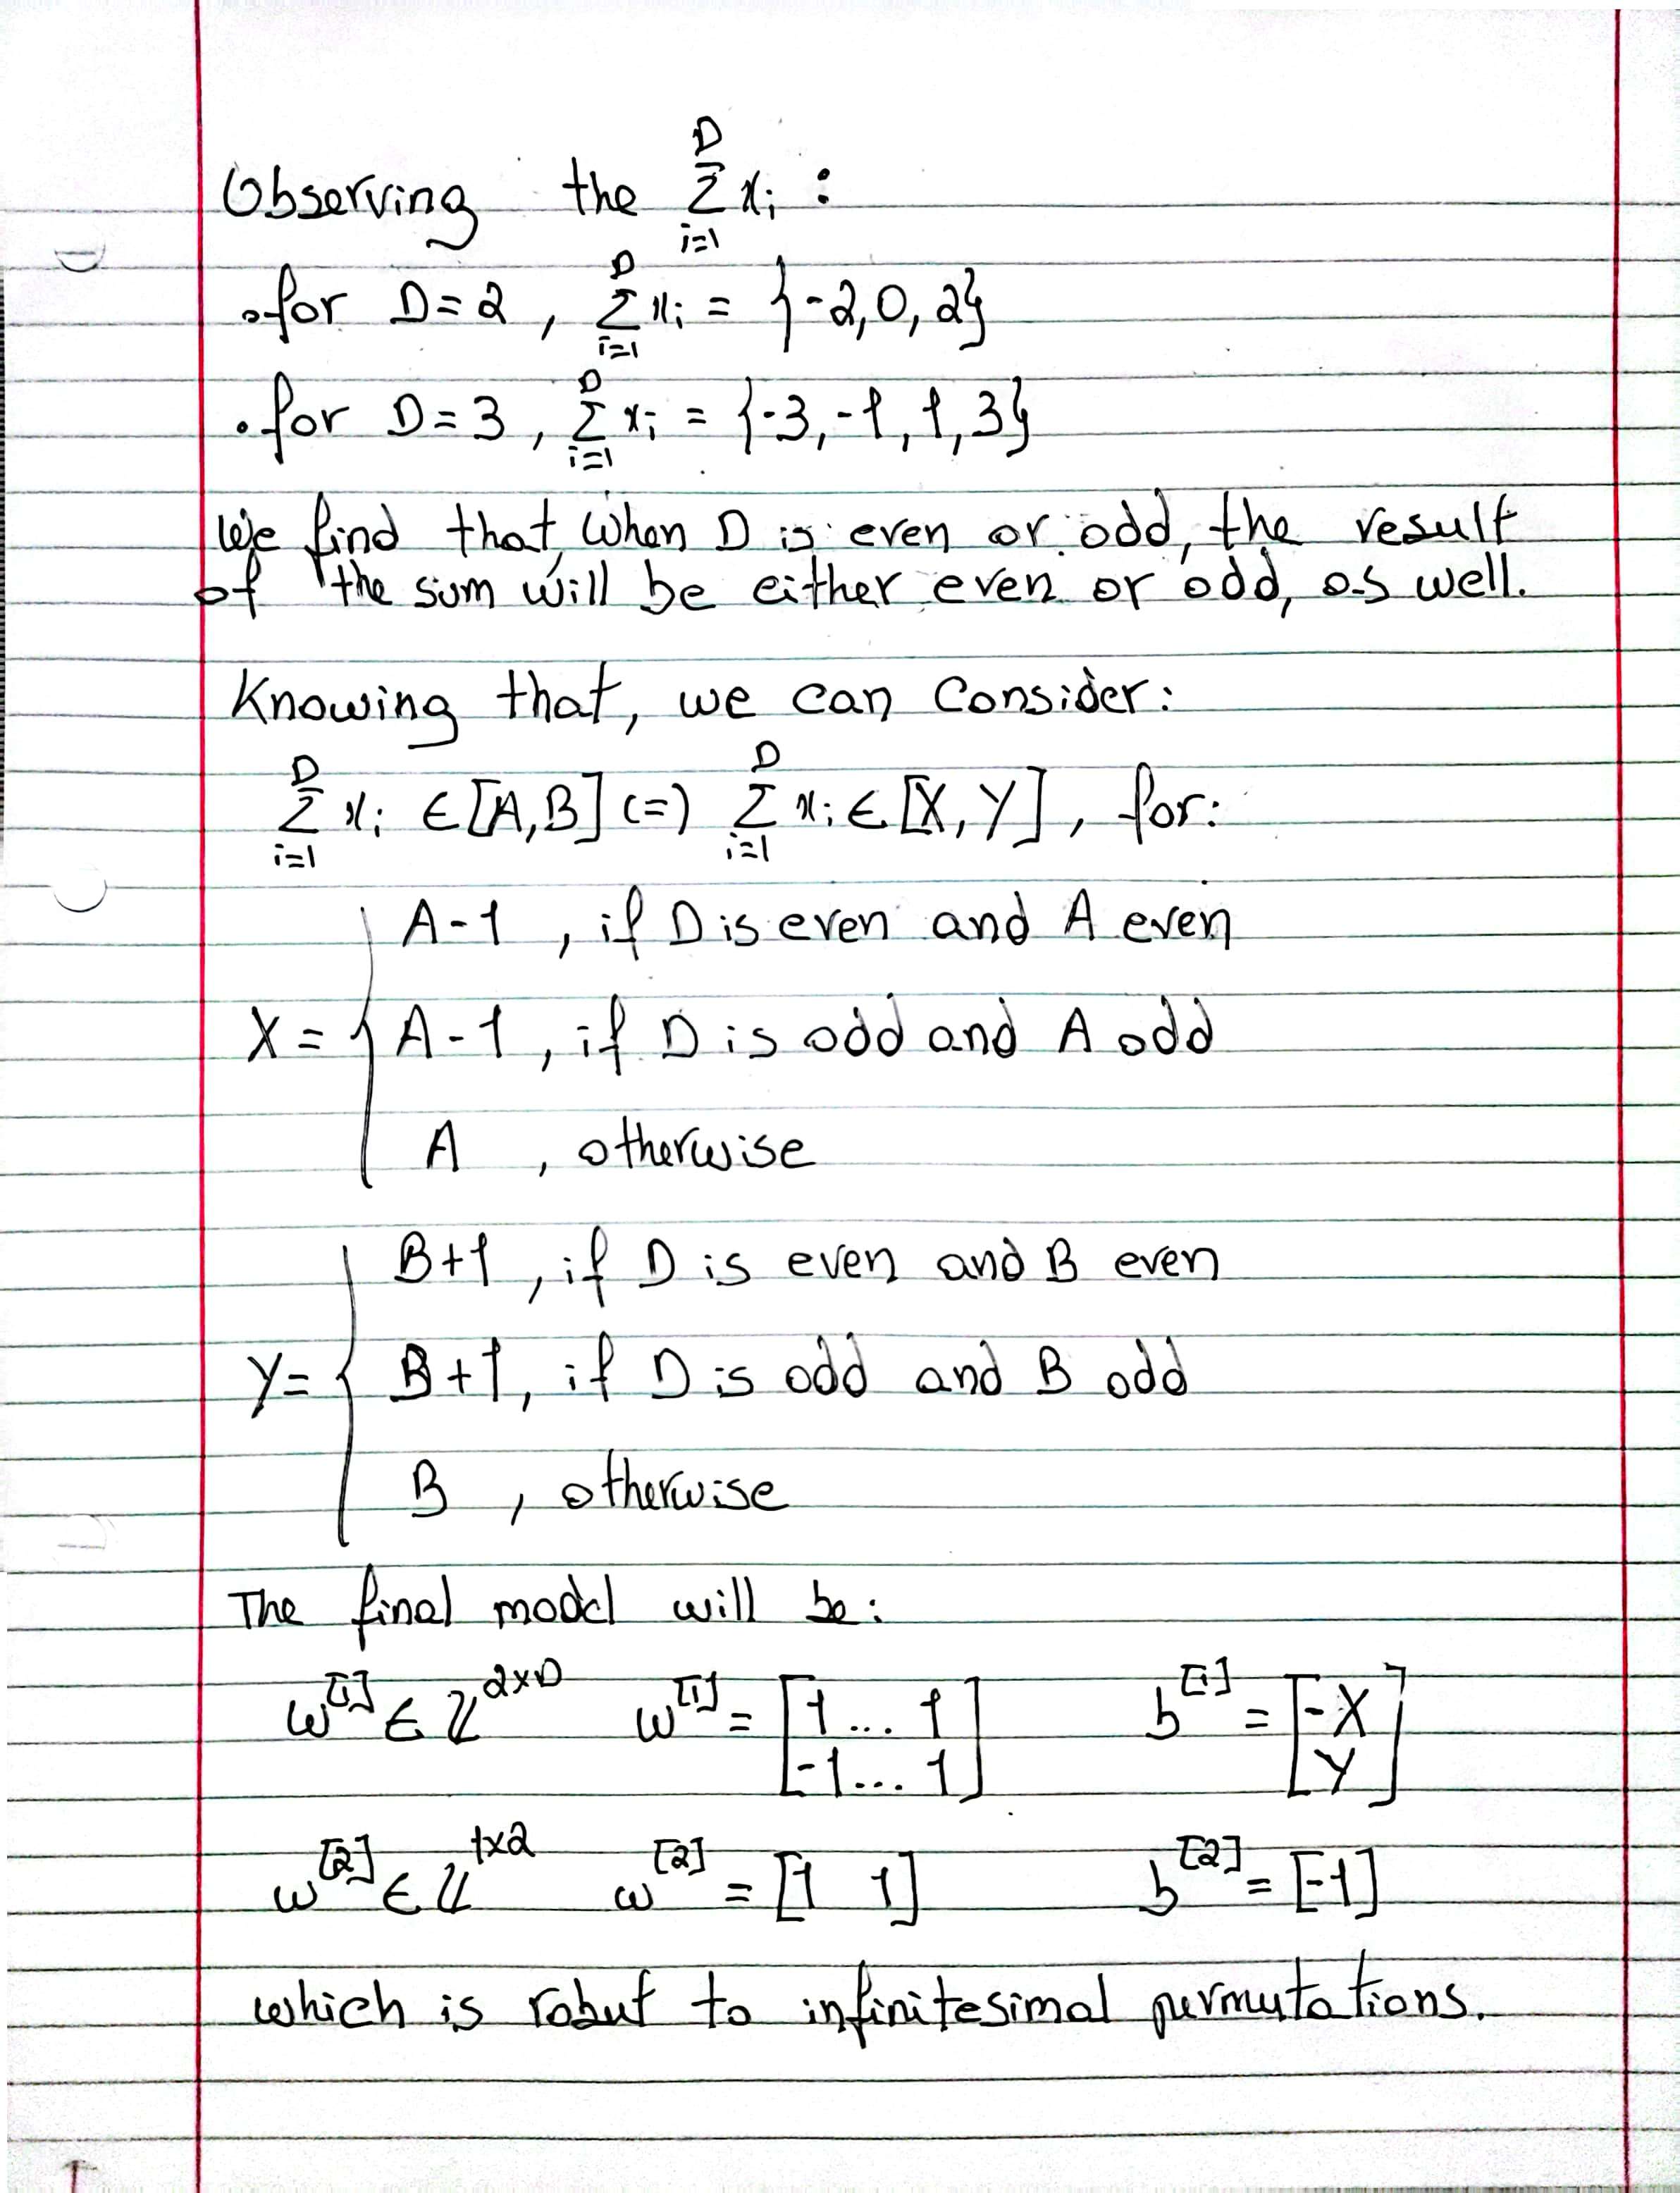 Observing the $\sum_{i=1}^{D} x_i$ :
• for D=2, $\sum_{i=1}^{D} x_i$ = {-2,0,2}
• for D=3, $\sum_{i=1}^{D} x_i$ = {-3,-1,1,3}
We find that, when D is even or odd, the result
of the sum will be either even or odd, as well.
Knowing that, we can consider:
$\sum_{i=1}^{D} x_i$ ∈ [A,B] (=) $\sum_{i=1}^{D} x_i$ ∈ [X,Y], for:
A-1, if D is even and A even
X= { A-1, if D is odd and A odd
A, otherwise
B+1, if D is even and B even
Y= { B+1, if D is odd and B odd
B, otherwise
The final model will be:
$w^{[1]} \in \mathbb{Z}^{2 \times D}$ $w^{[1]} = \begin{bmatrix} 1 ... 1 \\ -1 ... 1 \end{bmatrix}$ $b^{[1]} = \begin{bmatrix} -X \\ Y \end{bmatrix}$
$w^{[2]} \in \mathbb{Z}^{1 \times 2}$ $w^{[2]} = [1 \quad 1]$ $b^{[2]} = [-1]$
which is robut to infinitesimal purmutations.